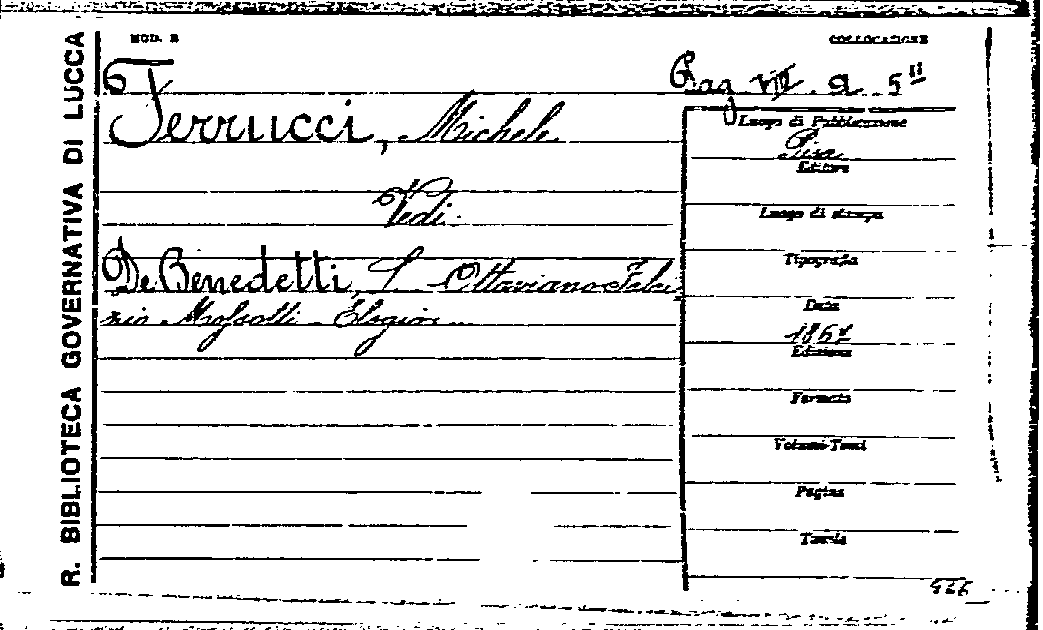 R. BIBLIOTECA GOVERNATIVA DI LUCCA
MOD. B
COLLOCAZIONE
Pag VIII. a. 5 II
Ferrucci, Michele
Vedi:
De Benedetti, S. Ottaviano Fabri-
zio Mossotti. Elogio...
Luogo di Pubblicazione
Pisa
Editore
Luogo di stampa
Tipografia
Data
Edizione
Formato
Volumi-Tomi
Pagine
Tavole